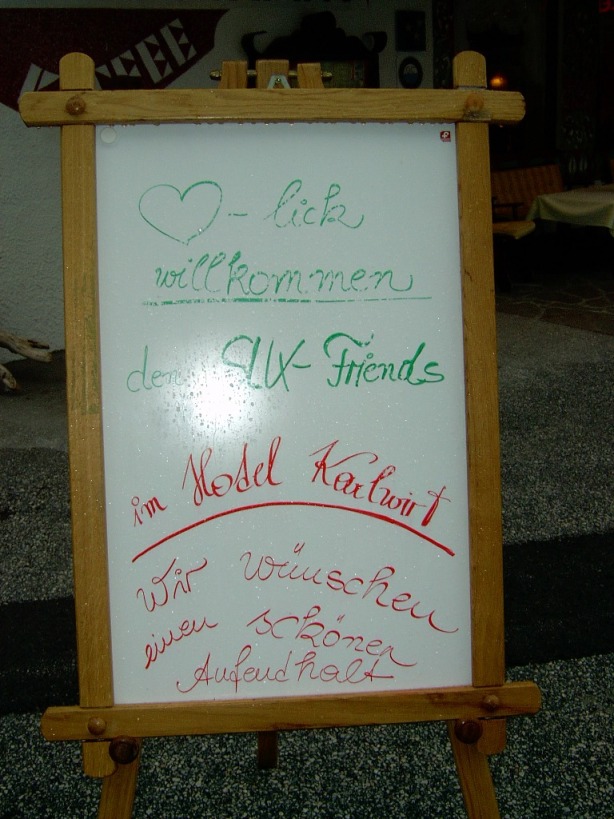 KAFFEE
♡-lich
willkommen
den SLK-Friends
im Hotel Karlwirt
Wir wünschen
einen schönen
Aufendhalt